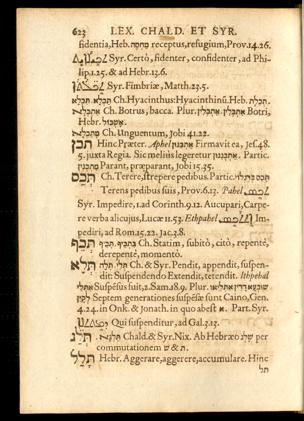 623 LEX. CHALD. ET SYR.
fidentia, Heb. מחסה receptus, refugium, Prov. 14. 26.
Syr. Certò, fidenter, confidenter, ad Phi-
lip. 1. 25. & ad Hebr. 13. 6.
Syr. Fimbriæ, Matth. 23. 5.
תכלא Ch: Hyacinthus: Hyacinthinū. Heb. תכלת.
Ch: Botrus, bacca. Plur. Botri,
Hebr. אשכול.
Ch: Unguentum, Job 41. 22.
תכן Hinc Præter. Aphel Firmavit ea, Jes. 48.
5. juxta Regia. Sic melius legeretur Partic.
Parant, præparant, Job 15. 35.
תכס Ch: Terere, strepere pedibus. Partic.
Terens pedibus suis, Prov. 6. 13. Pahel
Syr. Impedire, 1. ad Corinth. 9. 12. Aucupari, Carpe-
re verba alicujus, Lucæ 11. 53. Ethpahel Im-
pediri, ad Rom. 15. 22. Jac. 3. 8.
תכף Ch: Statim, subitò, citò, repentè,
derepentè, momentò.
תלא Ch: & Syr. Pendit, appendit, suspen-
dit: Suspendendo Extendit, tetendit. Ithpehal
Suspēsus fuit, 2. Sam. 18. 9. Plur.
Septem generationes suspēsæ sunt Caino, Gen.
4. 24. in Onk. & Jonath. in quo abest א. Part. Syr.
Qui suspenditur, ad Gal. 3. 13.
תלג Chald. & Syr. Nix. Ab Hebræo שלג per
commutationem ת & ש
תלל Hebr. Aggerare, aggerere, accumulare. Hinc
תל